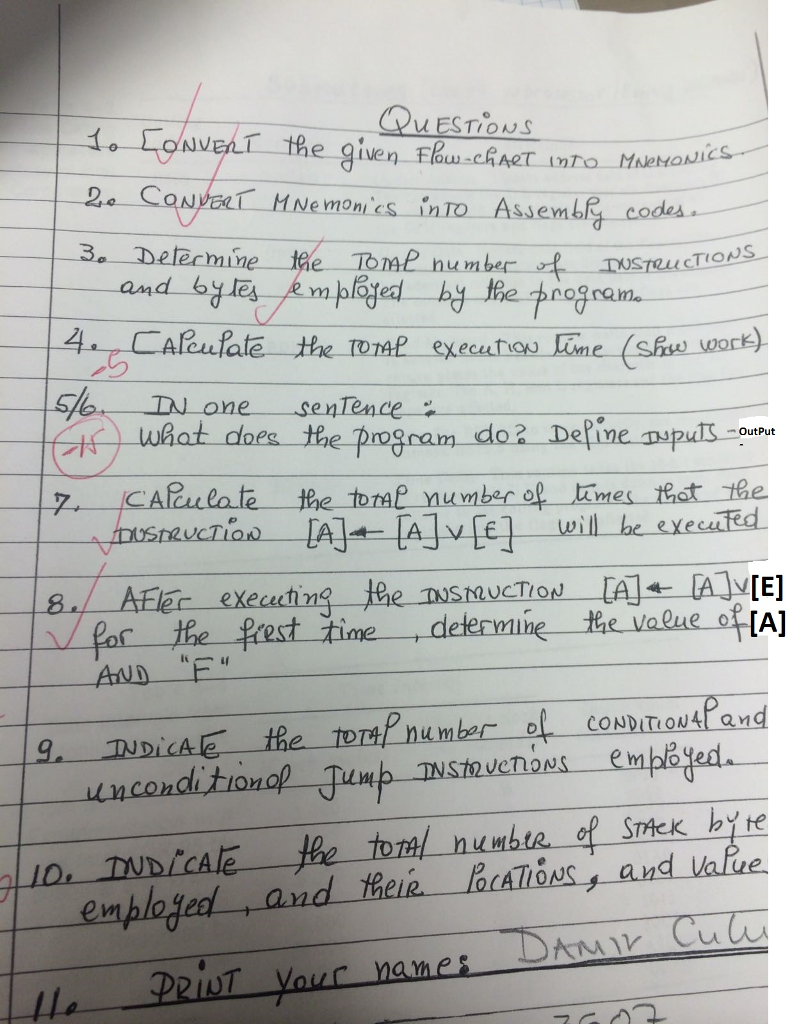 QUESTIONS
1. CONVERT the given Flow-chART INTO MNEMONICS.
2. CONVERT MNemonics inTO Assembly codes.
3. Determine the TOTAL number of INSTRUCTIONS
and bytes employed by the program.
4. CALculate the TOTAL execution Time (Show work)
-5
5/6. IN one sentence :
-15 What does the program do? Define INPUTS - OutPut
7. CALculate the total number of times that the
INSTRUCTION [A]← [A] ∨ [E] will be executed
8. AFTER executing the INSTRUCTION [A] ← [A]∨[E]
for the first time, determine the value of [A]
AND "F"
9. INDICATE the TOTAL number of CONDITIONAL and
unconditional Jump INSTRUCTIONS employed.
10. INDICATE the TOTAL number of STACK byte
employed, and their LOCATIONS, and value
11. PRINT your name: DAMIR